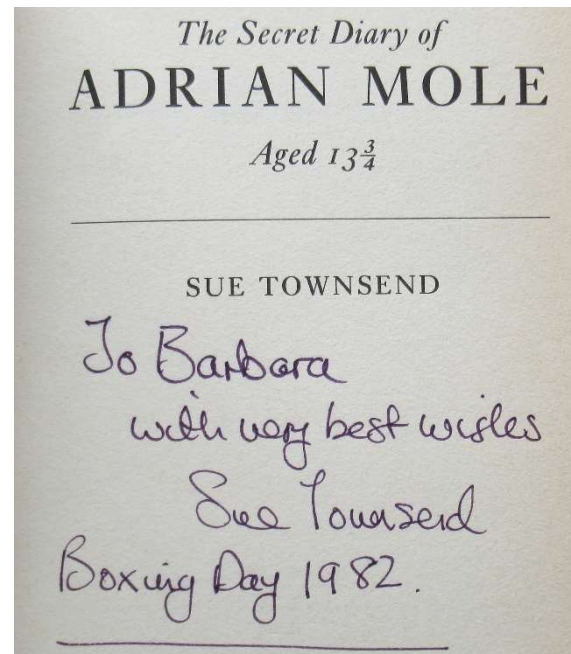 The Secret Diary of
ADRIAN MOLE
Aged 13¾
SUE TOWNSEND
To Barbara
with very best wishes
Sue Townsend
Boxing Day 1982.